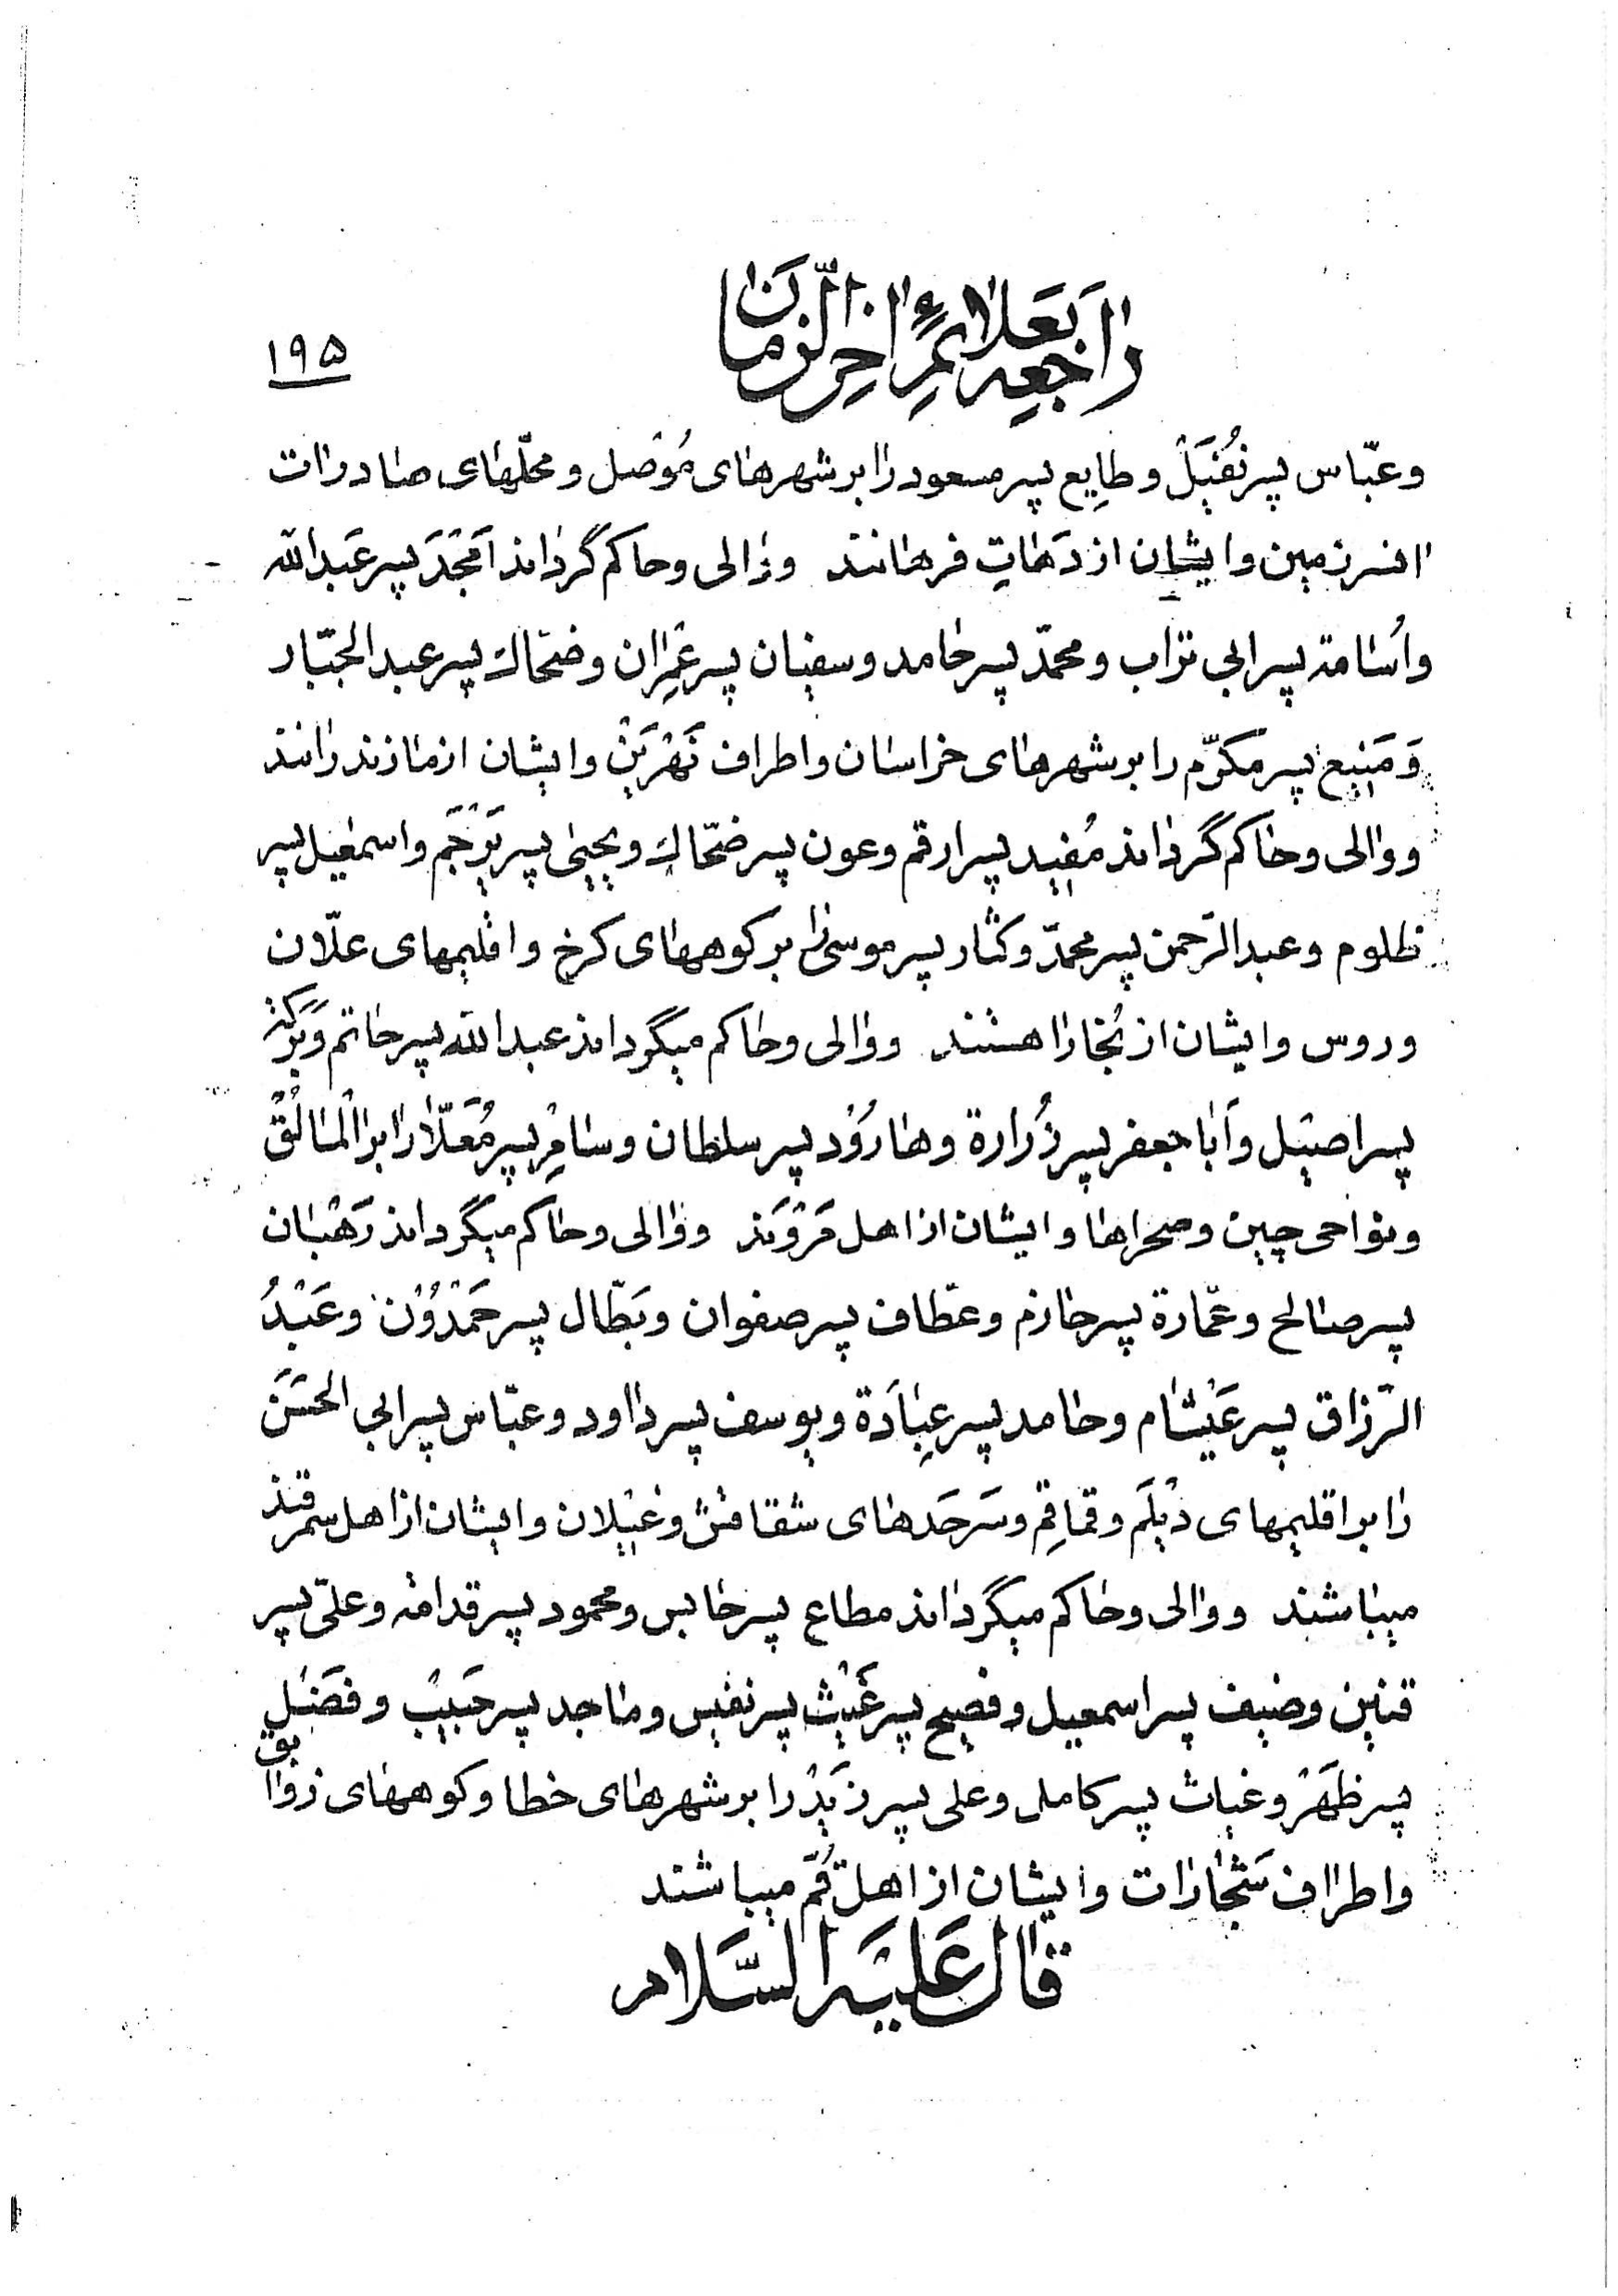 راجعه بعلائم آخر الزمان
۱۹۵
و عبّاس پسر نُفَیَلْ و طایِع پسر مسعود را بر شهرهای مُوْصل و محلّهای صادرات
انسرزمین و ایشان از دَهاتِ فرهانند و والی و حاکم گرداند اَمْجَدَ پسر عَبدالله
و اُسامة پسر ابی تراب و محمّد پسر حامد و سفیان پسر عُمِران و ضحّاك پسر عبد الجبّار
وَ مَنیع پسر مکرّم را بر شهرهای خراسان و اطراف نَهْرَیَنْ و ایشان از مازندرانند
و والی و حاکم گرداند مُفید پسر ارقم و عون پسر ضحّاك و یحیی پسر یَرْجَم و اسمعیل پسر
ظلوم و عبدالرّحمن پسر محمّد و کثار پسر موسی را بر کوههای کرخ و اقلیمهای علّان
و روس و ایشان از بُخارا هستند و والی و حاکم میگرداند عبدالله پسر حاتم وَ بَرَکة
پسر اصیَل و اَبا جعفر پسر زُرارة و هارُوْد پسر سلطان و سامِر پسر مُعَلّا را بر المالُقْ
و نواحی چین و صحراها و ایشان از اهل مَرْوَند و والی و حاکم میگرداند رَهْبان
پسر صالح و عمّارة پسر حازم و عطّاف پسر صفوان و بَطّال پسر حَمْدُوْنْ و عَبْدُ
الرّزاق پسر عَیْشام و حامد پسر عِبادَة و یوسف پسر داود و عبّاس پسر ابی الحسَنَ
را بر اقلیمهای دَیْلَم و قماقِم و سَرحَدهای شقاقش و غَیْلان و ایشان از اهل سمرقند
میباشند و والی و حاکم میگرداند مطاع پسر حابس و محمود پسر قدامة و علیّ پسر
قنین وضیف پسر اسمعیل و فصیح پسر غَیْث پسر نفیس و ماجد پسر حَبیبْ و فضَل
پسر ظَهَرْ و غیاث پسر کامل و علی پسر زَیْد را بر شهرهای خطا و کوههای زوابق
و اطراف شَجارات و ایشان از اهل قُمّ میباشند
قالَ عَلَیْهِ السَّلام